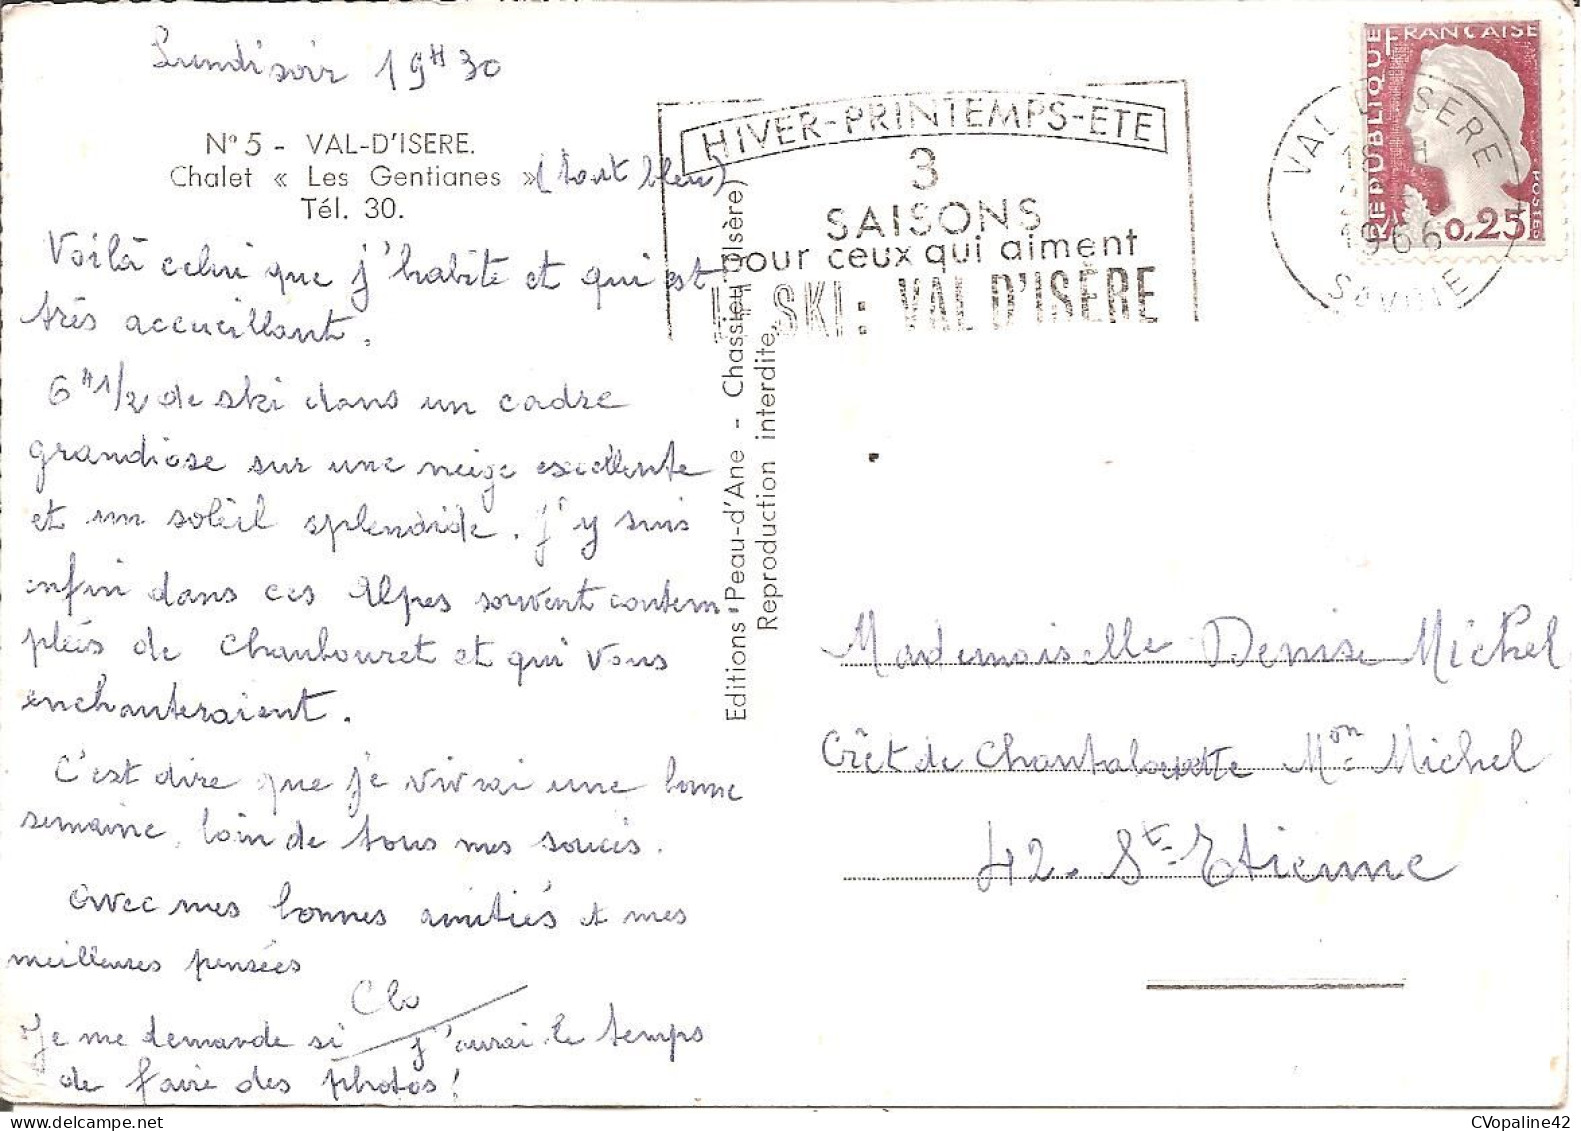 Lundi soir 19H30
N° 5 - VAL-D'ISERE.
Chalet « Les Gentianes » (tout bleu)
Tél. 30.
Voilà celui que j'habite et qui est
très accueillant.
6H1/2 de ski dans un cadre
grandiose sur une neige excellente
et un soleil splendide. J'y suis
enfin dans ces Alpes souvent contem-
plées de Chaubouret et qui vous
enchanteraient.
C'est dire que je vivrai une bonne
semaine, loin de tous mes soucis.
Avec mes bonnes amitiés et mes
meilleures pensées
Clo
Je me demande si j'aurai le temps
de faire des photos!
Editions Peau-d'Ane - Chassieu (Isère)
Reproduction interdite.
HIVER-PRINTEMPS-ETE
3
SAISONS
pour ceux qui aiment
LE SKI: VAL D'ISÈRE
VAL D'ISERE
1966
SAVOIE
REPUBLIQUE FRANCAISE
POSTES
0,25
Mademoiselle Denise Michel
Crêt de Chantalouette Mon Michel
42. St-Etienne
CVopaline42